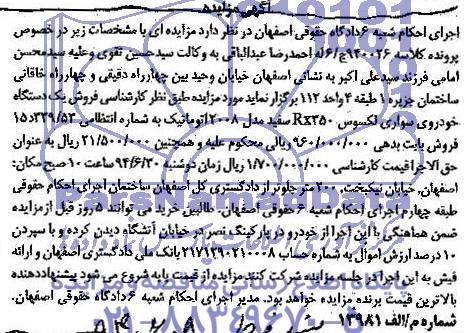 آگهی مزایده
اجرای احکام شعبه ۶ دادگاه حقوقی اصفهان در نظر دارد مزایده ای با مشخصات زیر در خصوص
پرونده کلاسه ۹۳۰۰۲۶ ج/۶ له احمدرضا عبدالباقی به وکالت سیدحسین تقوی وعلیه سیدمحسن
امامی فرزند سیدعلی اکبر به نشانی اصفهان خیابان وحید بین چهارراه دقیقی و چهارراه خاقانی
ساختمان جزیره ۱ طبقه ۴ واحد ۱۱۲ برگزار نماید مورد مزایده طبق نظر کارشناسی فروش یک دستگاه
خودروی سواری لکسوس Rx350 سفید مدل ۲۰۰۸ اتوماتیک به شماره انتظامی
فروش بابت بدهی ۹۶۰/۰۰۰/۰۰۰ ریالی محکوم علیه و همچنین ۲۱/۵۰۰/۰۰۰ ریال به عنوان
حق الاجرا قیمت کارشناسی ۱/۷۰۰/۰۰۰/۰۰۰ ریال زمان دوشنبه ۹۴/۶/۳۰ ساعت ۱۰ صبح مکان:
اصفهان، خیابان نیکبخت، ۲۰۰ متر جلوتر از دادگستری کل اصفهان ساختمان اجرای احکام حقوقی
طبقه چهارم اجرای احکام شعبه ۶ حقوقی اصفهان. طالبین خرید می توانند ۵ روز قبل از مزایده
ضمن هماهنگی با این اجرا از خودرو در پارکینگ نصر در خیابان آتشگاه دیدن کرده و با سپردن
۱۰ درصد ارزش اموال به شماره حساب ۲۱۷۱۲۹۰۲۱۰۰۰۸ بانک ملی دادگستری اصفهان و ارائه
فیش به این اجرا در جلسه مزایده شرکت کنند مزایده از قیمت پایه شروع می شود پیشنهاددهنده
بالاترین قیمت برنده مزایده خواهد بود. مدیر اجرای احکام شعبه ۶ دادگاه حقوقی اصفهان.
شماره م/الف ۱۳۹۸۱
ParsNamadData
۰۲۱-۸۸۳۴۹۶۷۰